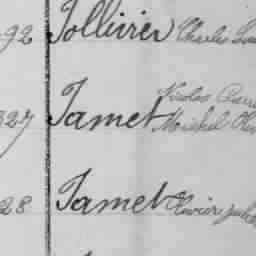 92 Jollivier Charles
327 Jamet Nicolas
Michel
28 Jamet Olivier